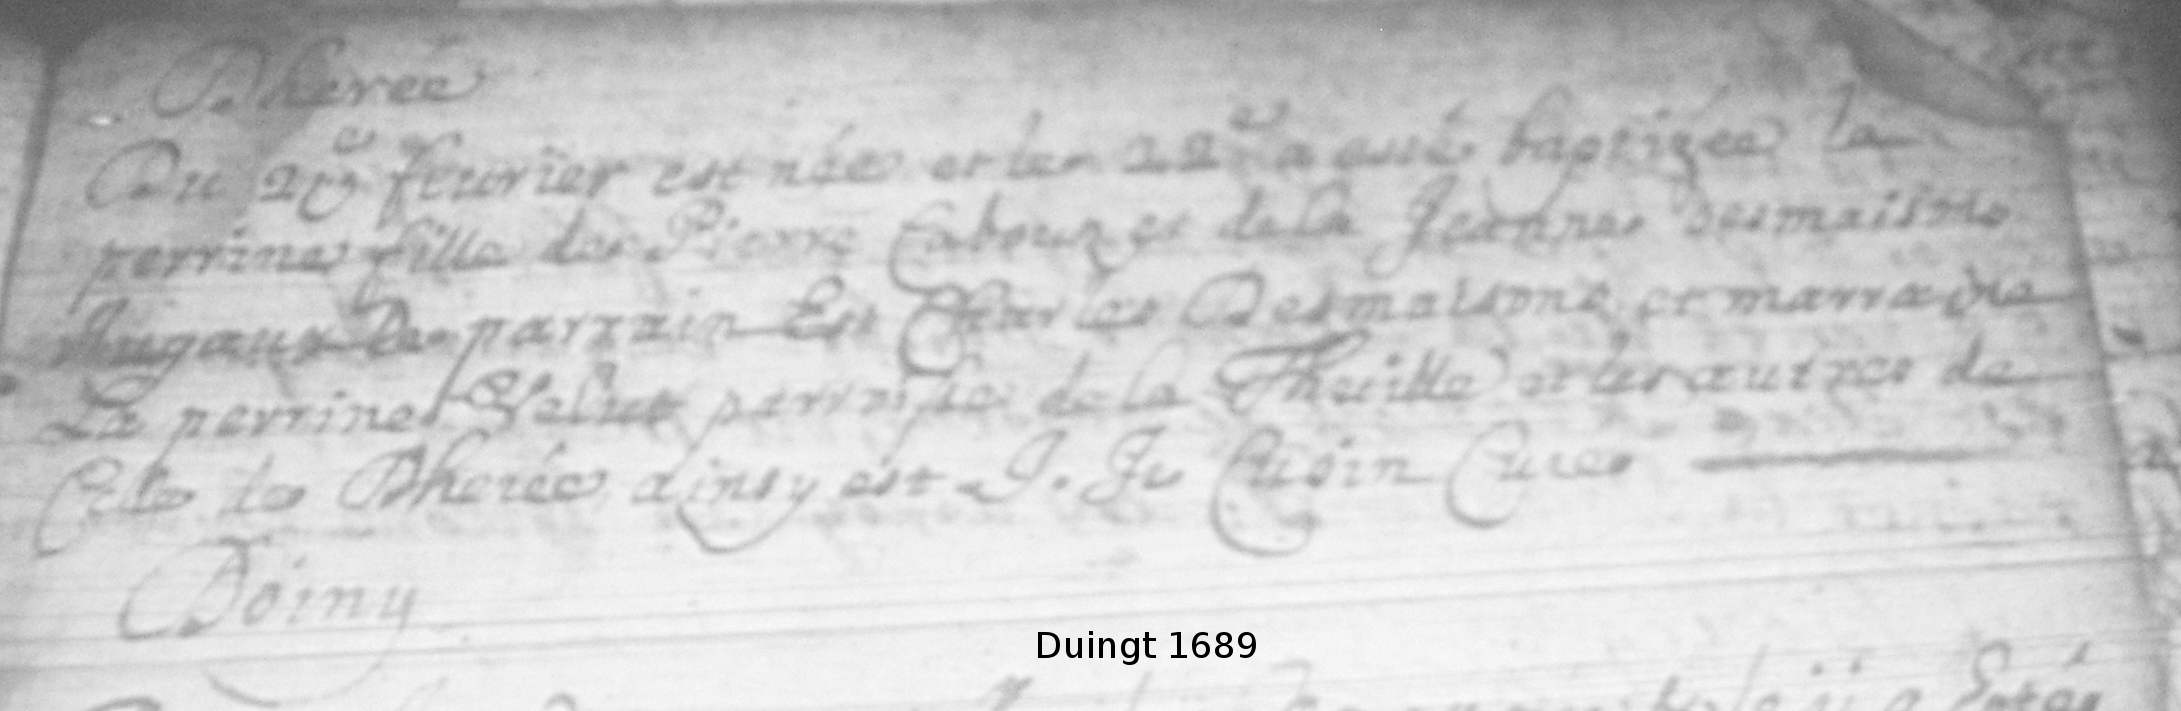 Dheree
Du 21e feurier est née et le 22e a esté baptizée la
perrine fille de Pierre et de la Jeanne Desmaisons
Jugaux De parrain Est Charles Desmaisons et marraine
La perrine de la Thuille et les autres de
Dherée ainsy est J. Cugin Cure
Doiny
Duingt 1689